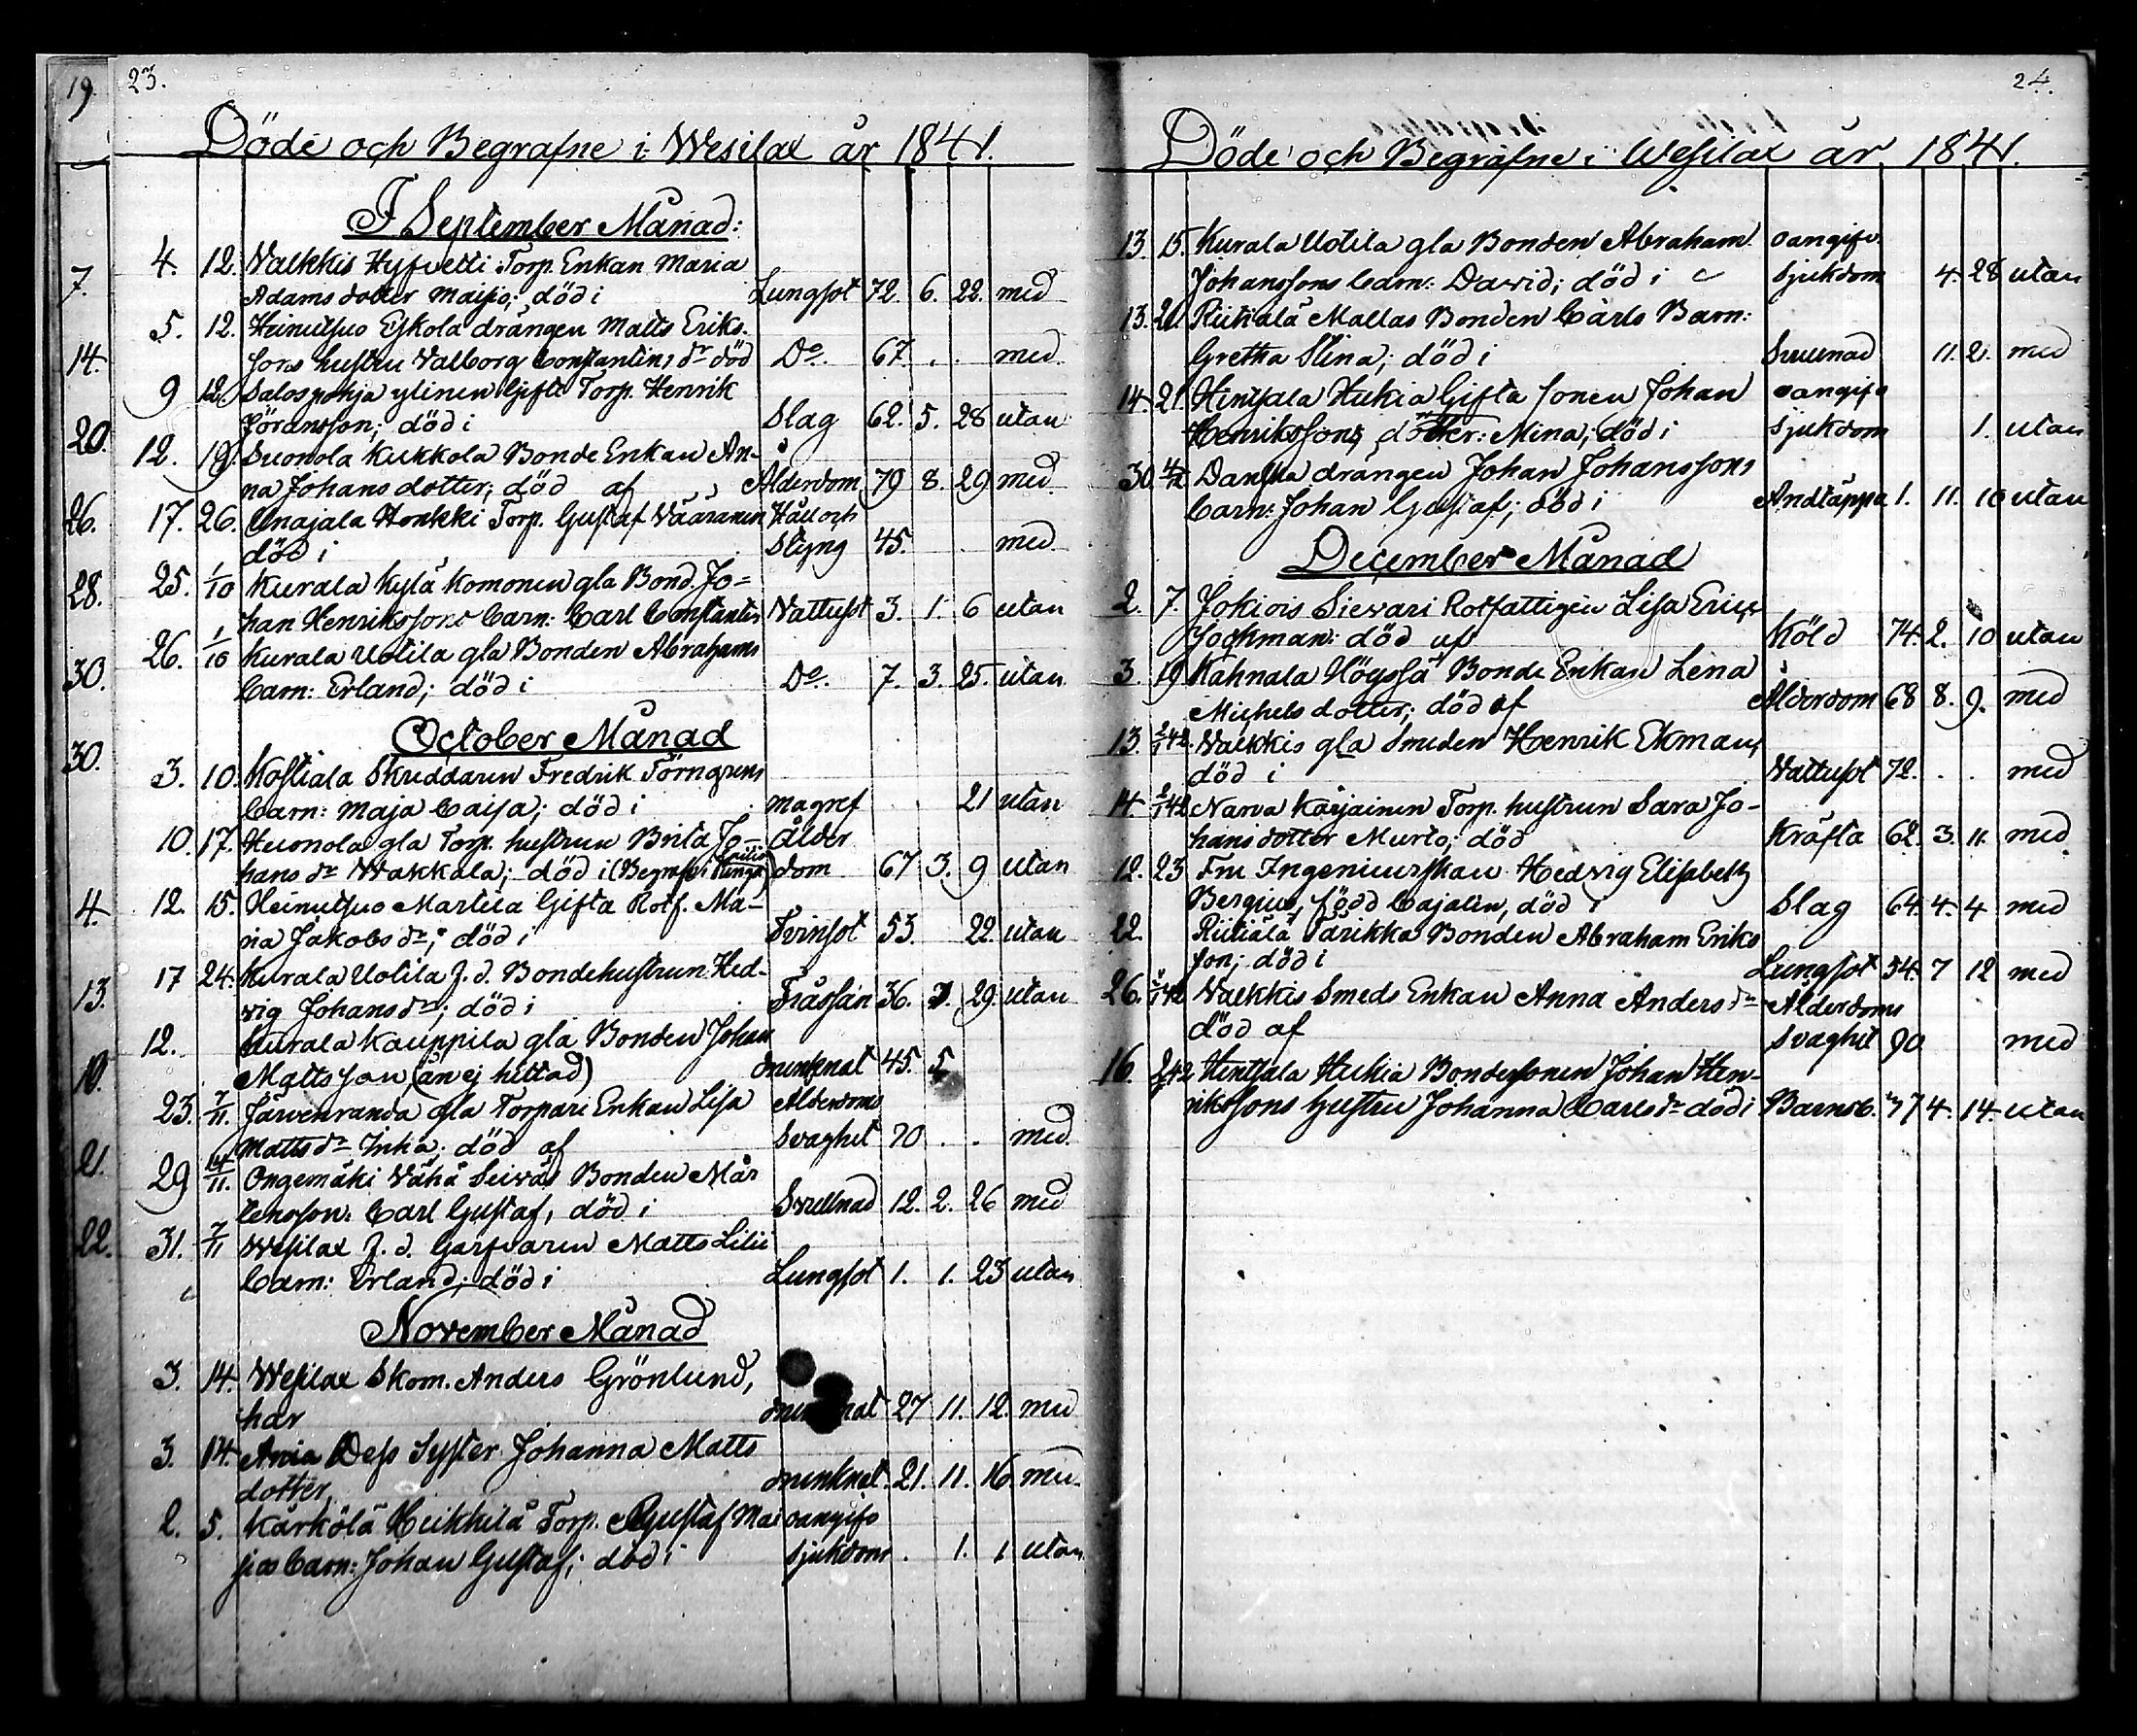 19.
7.
14.
20.
26.
28.
30.
30.
4.
13.
21.
22.
23.
Döde och Begrafne i Wesilax år 1841.
I September Månad:
4. 12. Valkkis Hyfvetti Torp. Enkan Maria
Adams dotter Maisio; död i Lungsot 72. 6. 22. med
5. 12. Heinutsuo Eskola drängen Matts Eriks-
sons hustru Valborg Constantins dr död Do. 67. . . med
9 12. Salospohja ylinen Gifte Torp. Henrik
Göransson; död i Slag 62. 5. 28 utan
12. 19. Suonola Kukkola Bonde Enkan An-
na Johans dotter; död af Ålderdom 79 8. 29 med
17. 26. Onajala Honkki Torp. Gustaf Vääränen Håll och
död i Styng 45. . med
25. 1/10 Kurala Kylä Komonen gla Bond. Jo=
han Henrikssons barn: Carl Constantin Vattusot 3. 1. 6 utan
26. 1/10 Kurala Uotila gla Bonden Abrahams
barn: Erland; död i Do. 7. 3. 25. utan
October Månad
3. 10. Kostiala Skreddaren Fredrik Törngrens
barn: Maja Caisa; död i magref . . 21 utan
10. 17. Huonola gla Torp. hustrun Brita Jo- Ålder
hans dr Wakkala; död i (Begrafv. i Kunga) dom 67 3. 9 utan
12. 15. Heinutsuo Martila Gifta Rotf. Ma-
ria Jakobs dr; död i Tvinsot 53. 22. utan
17 24. Kurala Uotila f. d. Bondehustrun Hed-
vig Johans dr; död i Frässan 36. 7. 29. utan
12. Kurala Kauppila gla Bonden Johan
Mattsson (än ej hittad) drunknat 45. 5
23. 7/11. Järvenranda gla Torpare Enkan Lisa Ålderdoms
Matts dr Inka; död af Svaghet 70 . . med
29 14/11. Ongemäki Vähä Seiväs Bonden Mår
tensson: Carl Gustaf, död i Svullnad 12. 2. 26 med
31. 7/11 Wesilax f. d. Garfvaren Matts Lilii
barn: Erland; död i Lungsot 1. 1. 23 utan
November Månad
3. 14. Wesilax Skom. Anders Grönlund,
har drunknat 27 11. 12. med
3. 14. Dess Syster Johanna Matts
dotter, drunknat. 21. 11. 16. med
2. 5. Kärkölä Heikkilä Torp. Gustaf Mai oangifv
sios barn: Johan Gustaf; död i sjukdom . 1. 1 utan
24.
Döde och Begrafne i Wesilax år 1841.
13. 15. Kurala Uotila gla Bonden Abraham oangifv.
Johanssons barn: David; död i sjukdom 4. 28 utan
13. 21 Riekiälä Mattas Bonden Carls Barn:
Gretha Stina; död i Svullnad 11. 2. med
14. 21. Hentsala Hukia Gifta sonen Johan oangifv
Henrikssons dotter: Mina; död i sjukdom 1. utan
30. Danska drängen Johan Johanssons
barn: Johan Gustaf; död i Andtäppa 1. 11. 10 utan
December Månad
2. 7. Jokiois Sievari Rotfattigen Lisa Erics
Jockman: död af Köld 74. 2. 10 utan
3. 19 Kahnala Höyssä Bonde Enkan Lena
Michels dotter; död af Ålderdom 68 8. 9. med
13. 2/1 42. Valkkis gla Smeden Henrik Ekman,
död i Vattusot 72. . . med
14. 2/1 42 Narva Karjainen Torp. hustrun Sara Jo-
hans dotter Murto; död Kräfta 62. 3. 11. med
12. 23 Fru Ingenieurskan Hedvig Elisabeth
Bergius, född Cajalen, död i Slag 64. 4. 4 med
22. Riekiälä Parikka Bonden Abraham Eriks
son; död i Lungsot 54. 7 12 med
26. Valkkis Smeds Enkan Anna Anders dr Ålderdoms
död af svaghet 90 med
16. Hentsala Hukia Bondesonen Johan Hen-
rikssons hustru Johanna Carls dr död i Barnsb. 37 4. 14. utan